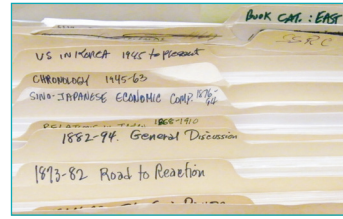 BOOK CAT. : EAST
SSRC
US IN KOREA 1945 to present
CHRONOLOGY 1945-63
SINO-JAPANESE ECONOMIC COMP. 1876-94
1868-1910
1882-94. General Discussion
1873-82 Road to Reaction